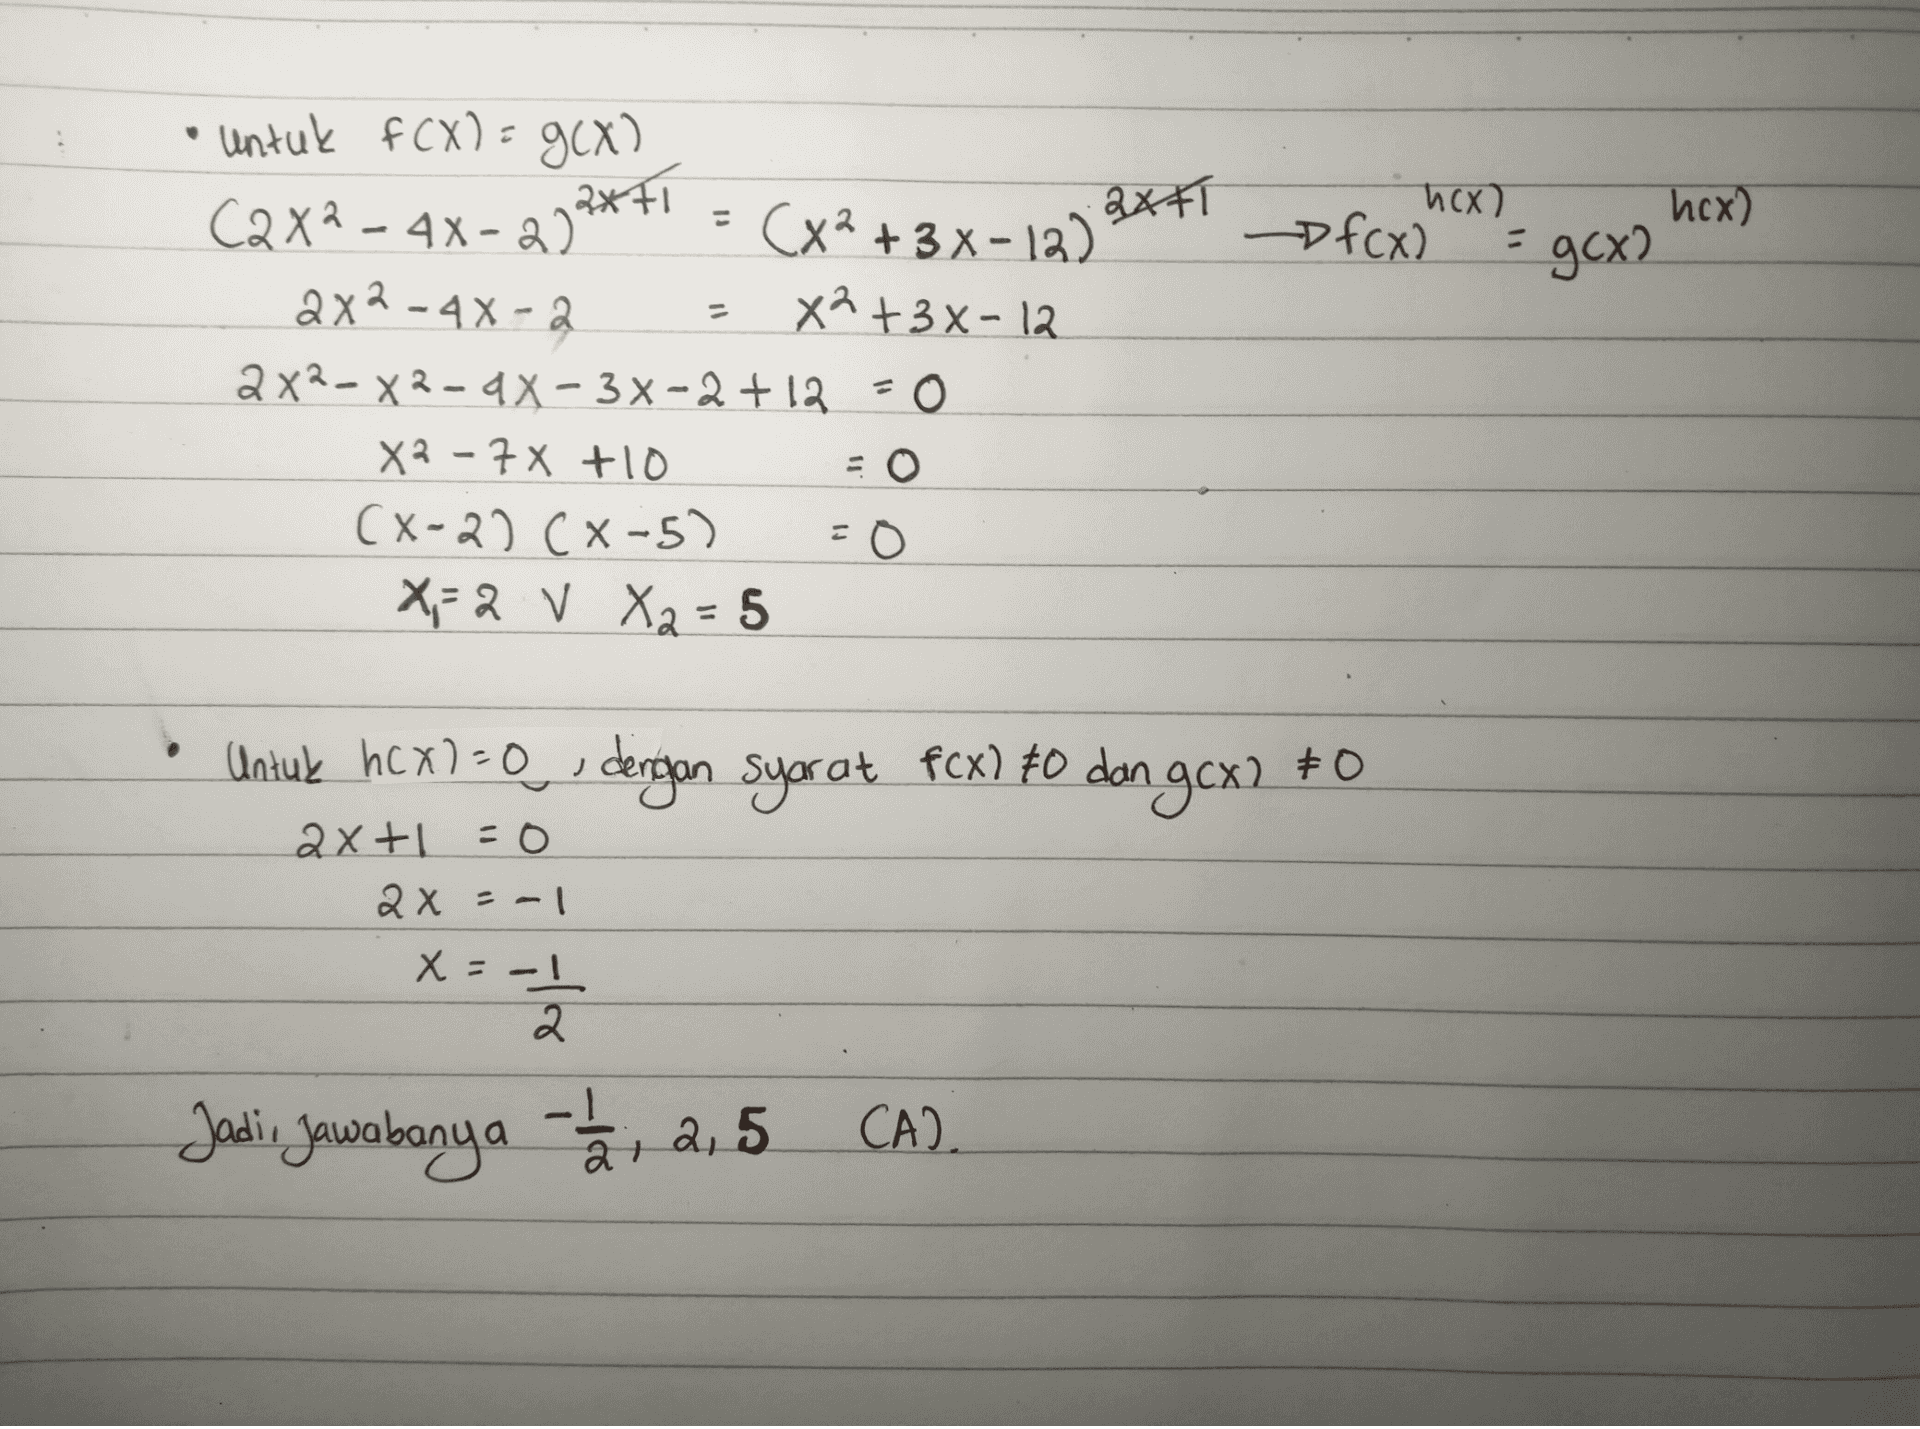 • Untuk f(x) = g(x)
(2x² - 4x - 2)²ˣ⁺¹ = (x² + 3x - 12)²ˣ⁺¹ → f(x)ʰ⁽ˣ⁾ = g(x)ʰ⁽ˣ⁾
2x² - 4x - 2 = x² + 3x - 12
2x² - x² - 4x - 3x - 2 + 12 = 0
x² - 7x + 10 = 0
(x - 2) (x - 5) = 0
x₁ = 2 V x₂ = 5
• Untuk h(x) = 0, dengan syarat f(x) ≠ 0 dan g(x) ≠ 0
2x + 1 = 0
2x = -1
x = -1/2
Jadi, jawabanya -1/2, 2, 5 (A).